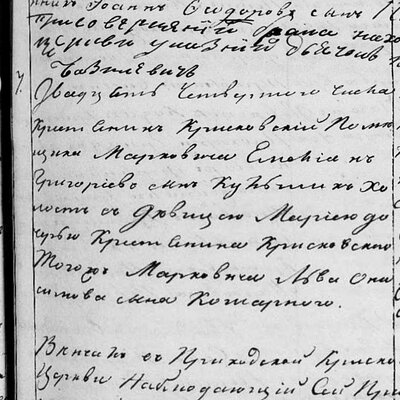 Іоаннъ Сидоровъ сынъ
при совершеніи брака нахо
церкви указній дьячокъ
Базилевичъ
7. Двадцать четвертого числа
Крестьянинъ Крисковскій Поме
щика Марковича Симеонъ
Григоріевъ сынъ Хо
лостъ съ Дѣвицею Маріею до
черью Крестьянина Крисковского
Тогожъ Марковича Льва Они
симова сына Кошарного.
Венчанъ въ Приходской Криско
Церкви Наблюдающій Сей При